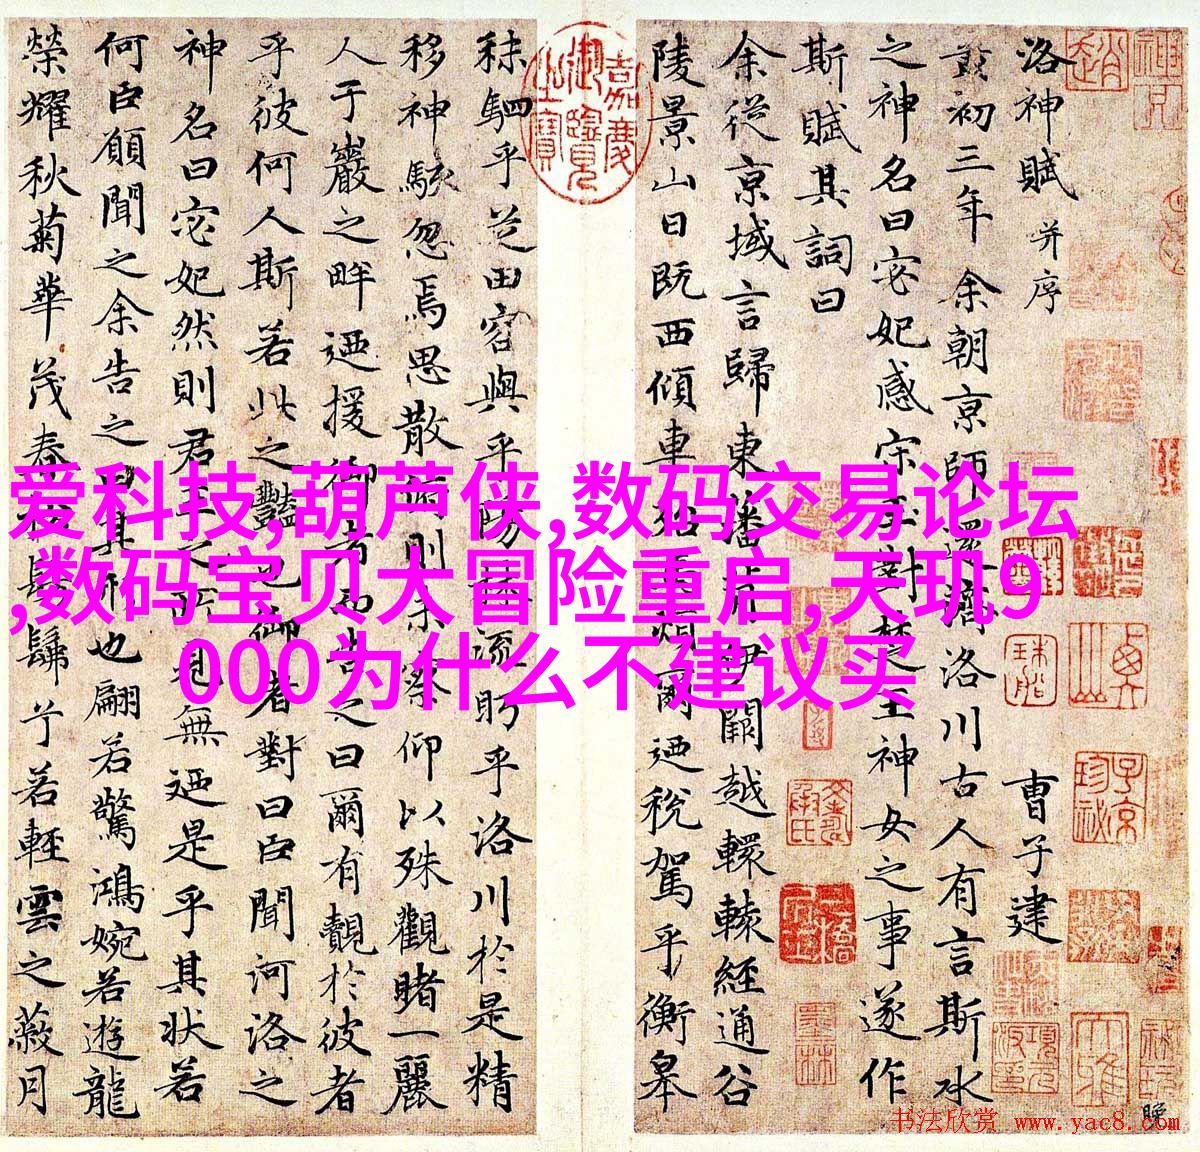 洛神賦 并序 曹子建
黄初三年余朝京師還濟洛川古人有言斯水
之神名曰宓妃感宋玉對楚王神女之事遂作
斯賦其詞曰
余從京域言歸東藩背伊闕越轘轅經通谷
陵景山日既西傾車殆馬煩爾迺稅駕乎衡皋
嘉慶御覽之寶
秣駟乎芝田容與乎陽林流眄乎洛川於是精
移神駭忽焉思散俯則未察仰以殊觀睹一麗
人于巖之畔迺援御者而告之曰爾有覿於彼者
乎彼何人斯若此之豔也御者對曰臣聞河洛之
神名曰宓妃然則君王之所見無迺是乎其狀若
何臣願聞之余告之曰其形也翩若驚鴻婉若遊龍
榮耀秋菊華茂春松髣髴兮若輕雲之蔽月
爱科技,葫芦侠,数码交易论坛
,数码宝贝大冒险重启,天玑9
000为什么不建议买
书法欣赏 www.yac8.com